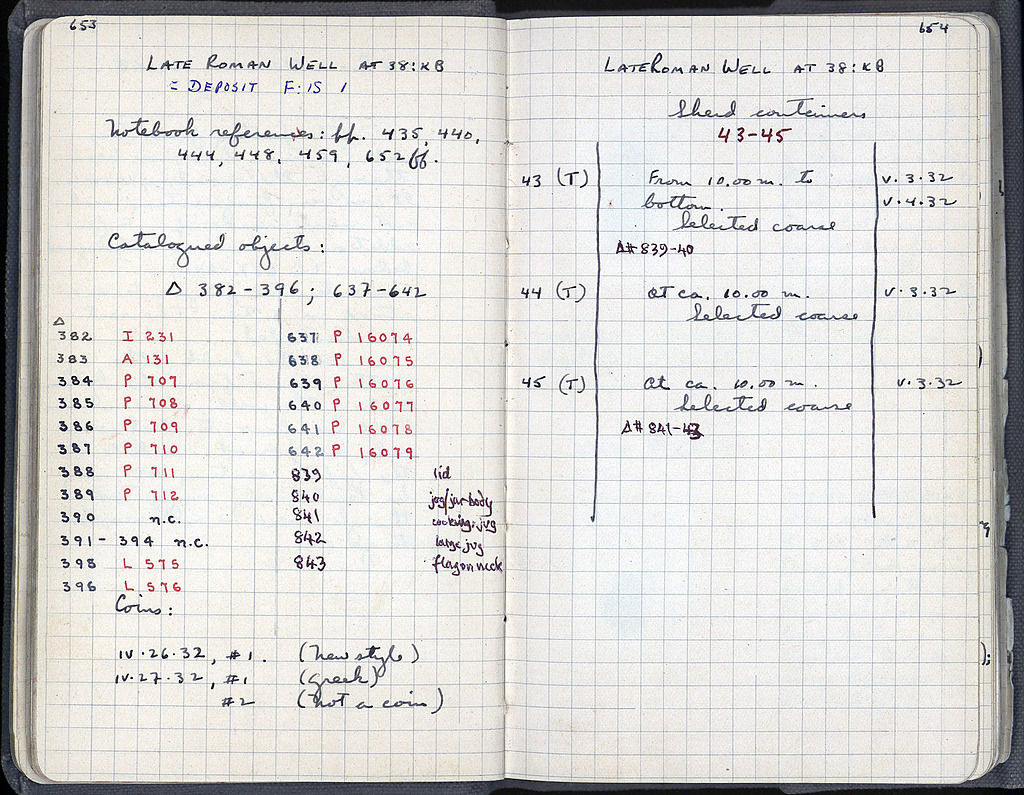 653
LATE ROMAN WELL AT 38:KB
= DEPOSIT F:15 1
Notebook references: pp. 435, 440,
444, 448, 459, 652 ff.
Catalogued objects:
Δ 382-396; 637-642
Δ
382 I 231 637 P 16074
383 A 131 638 P 16075
384 P 707 639 P 16076
385 P 708 640 P 16077
386 P 709 641 P 16078
387 P 710 642 P 16079
388 P 711 839 lid
389 P 712 840 jog/jar body
390 n.c. 841 cooking jug
391-394 n.c. 842 large jug
395 L 575 843 flagon neck
396 L 576
Coins:
IV·26·32, #1. (new style)
IV·27·32, #1 (greek)
#2 (not a coin)
654
LATE ROMAN WELL AT 38:KB
Sherd containers
43-45
43 (T) From 10.00 m. to V·3·32
bottom. V·4·32
Selected coarse
Δ# 839-40
44 (T) At ca. 10.00 m. V·3·32
Selected coarse
45 (T) At ca. 10.00 m. V·3·32
Selected coarse
Δ# 841-43